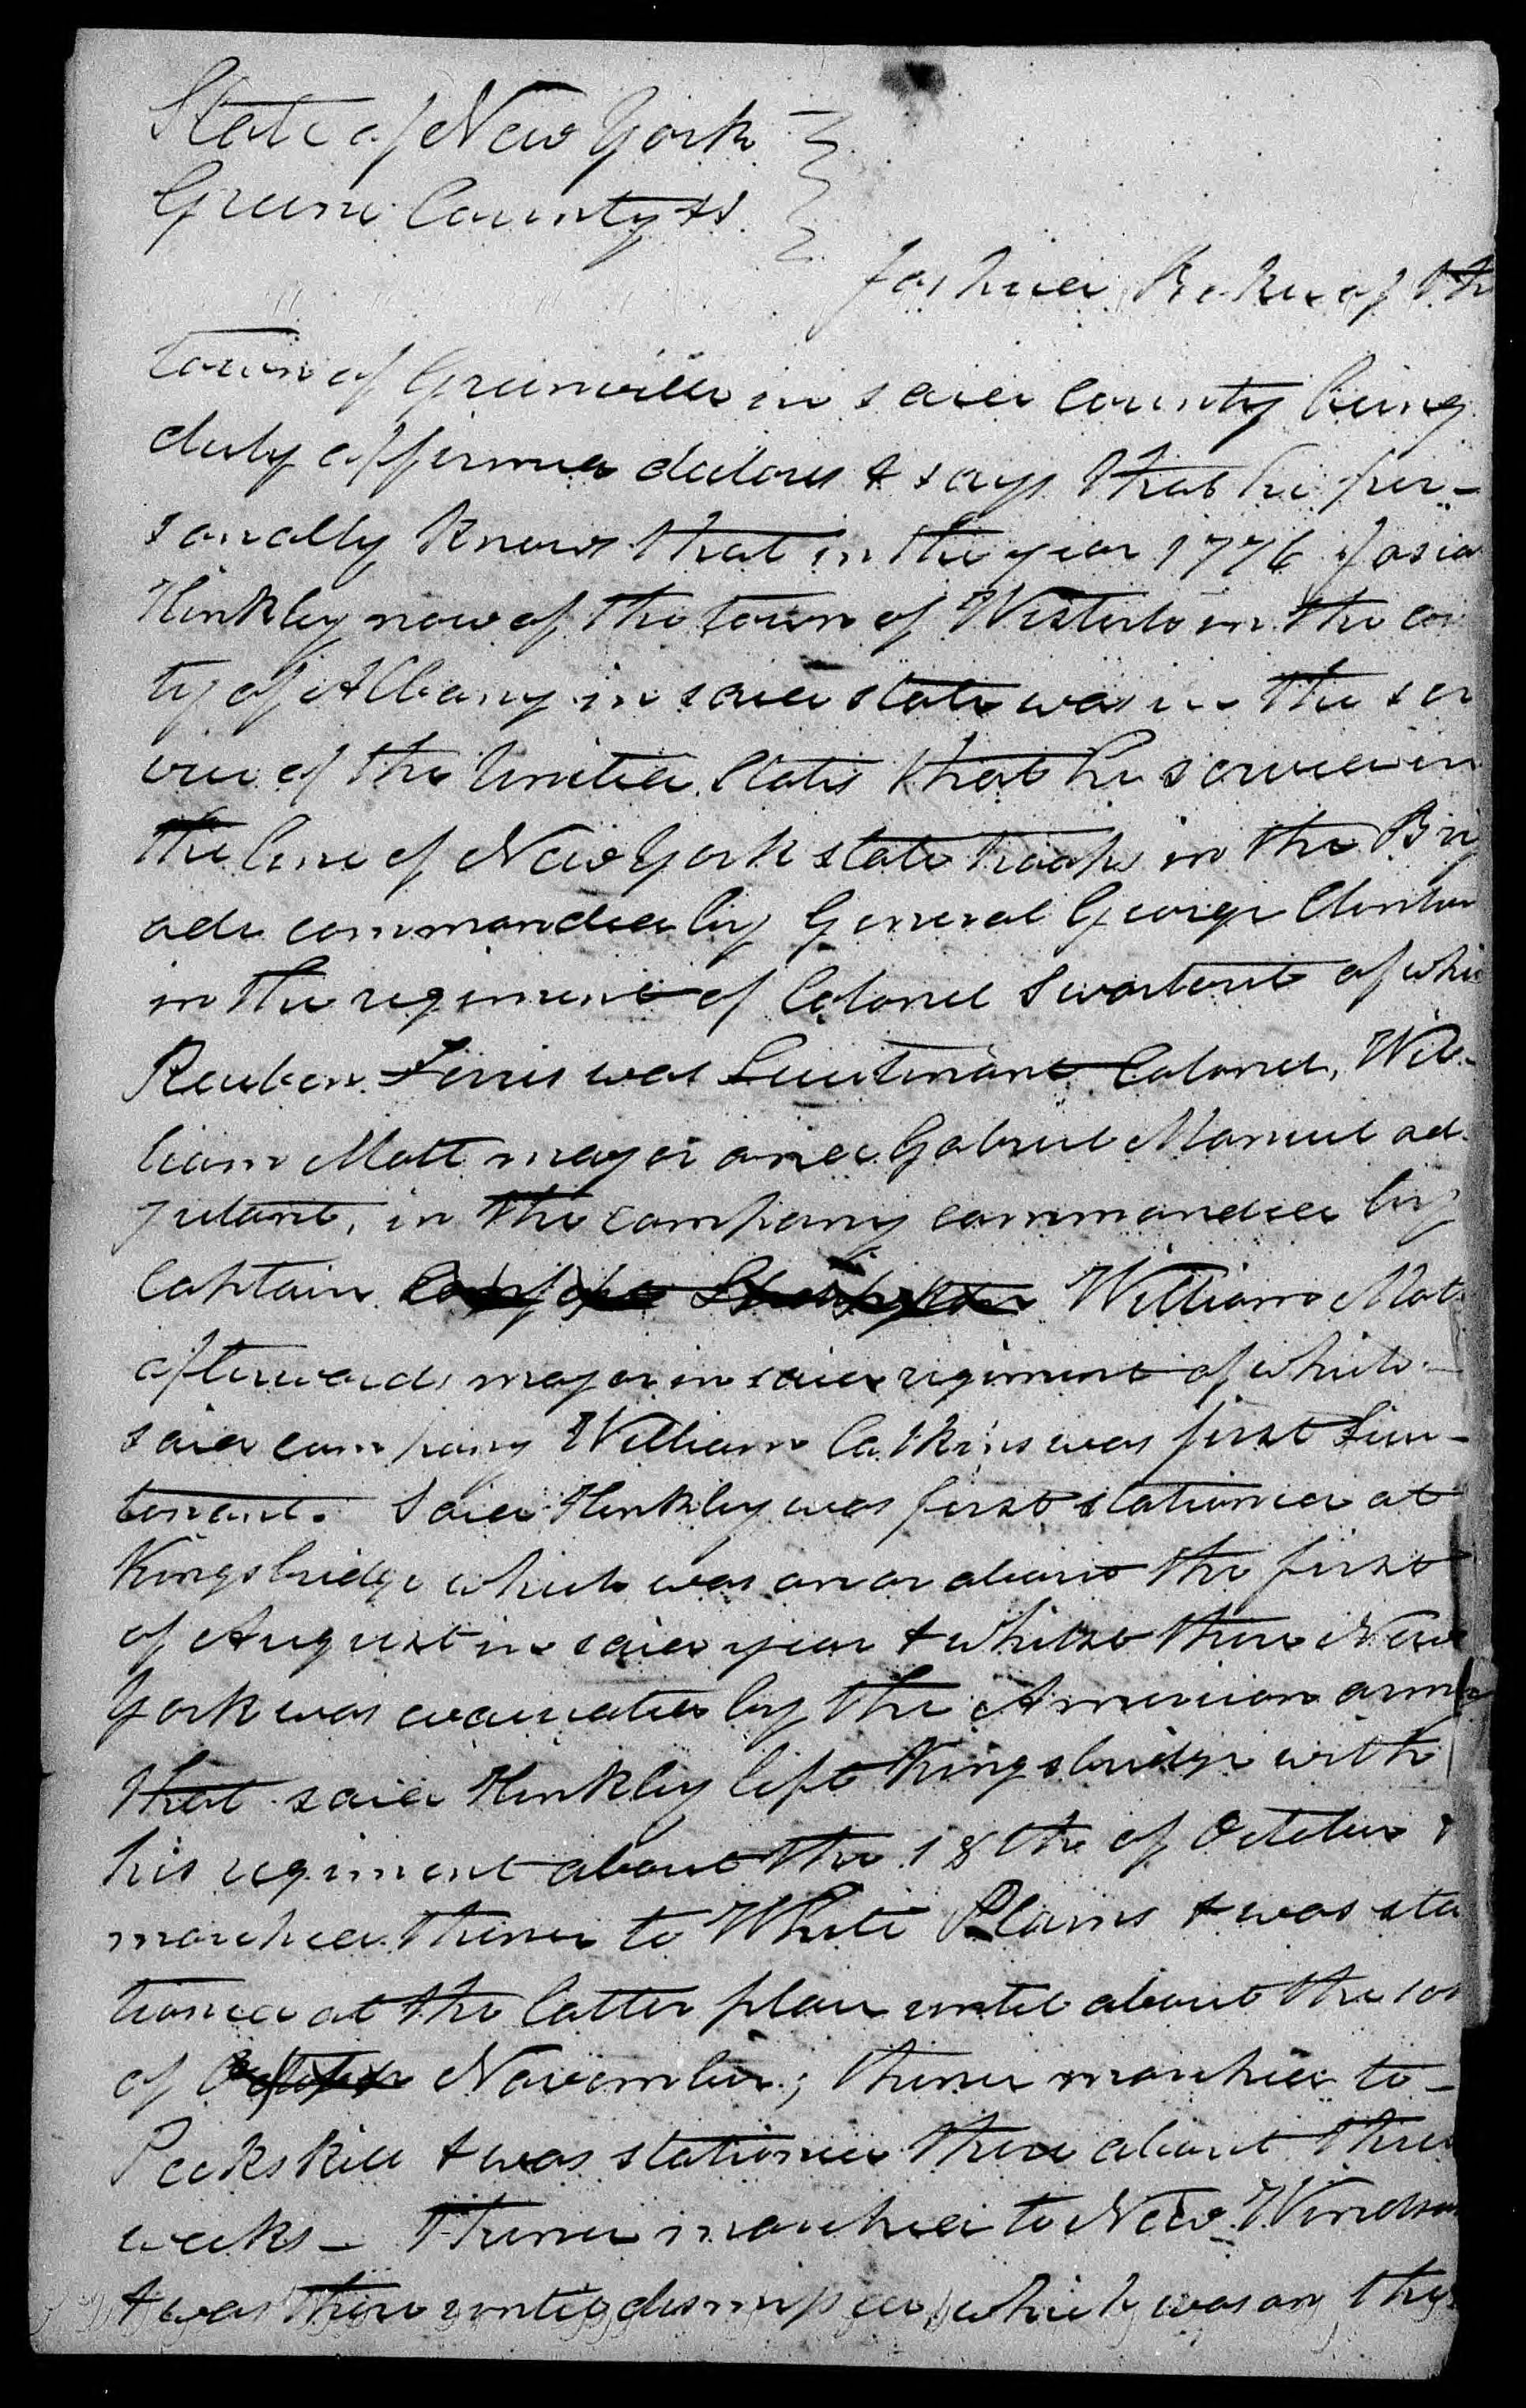 State of New York
Greene County ss
Joshua Baker of th
town of Greenville in said county being
duly affirmed declares & says that he per-
sonally knows that in the year 1776 Josia
Hinkley now of the town of Westerlo in the co
ty of Albany in said state was in the ser
vice of the United States that he served in
the line of New York state troops in the Brig
ade commanded by General George Clinton
in the regiment of Colonel Swartout of whi
Reuben Ferris was Lieutenant Colonel, Wil-
liam Mott major and Gabriel Manuel ad-
jutant, in the company commanded by
Captain William Mot
afterwards major in said regiment of which
said company William Calkins was first Lieu-
tenant. Said Hinkley was first stationed at
Kingsbridge which was on or about the first
of August in said year & whilst there New
York was evacuated by the American army
that said Hinkley left Kingsbridge with
his regiment about the 18th of October &
marched thence to White Plains & was sta
tioned at the latter place until about the 10
of October November; thence marched to
Peekskill & was stationed there about three
weeks - Thence marched to New Windsor
& was there until dismissed which was on the